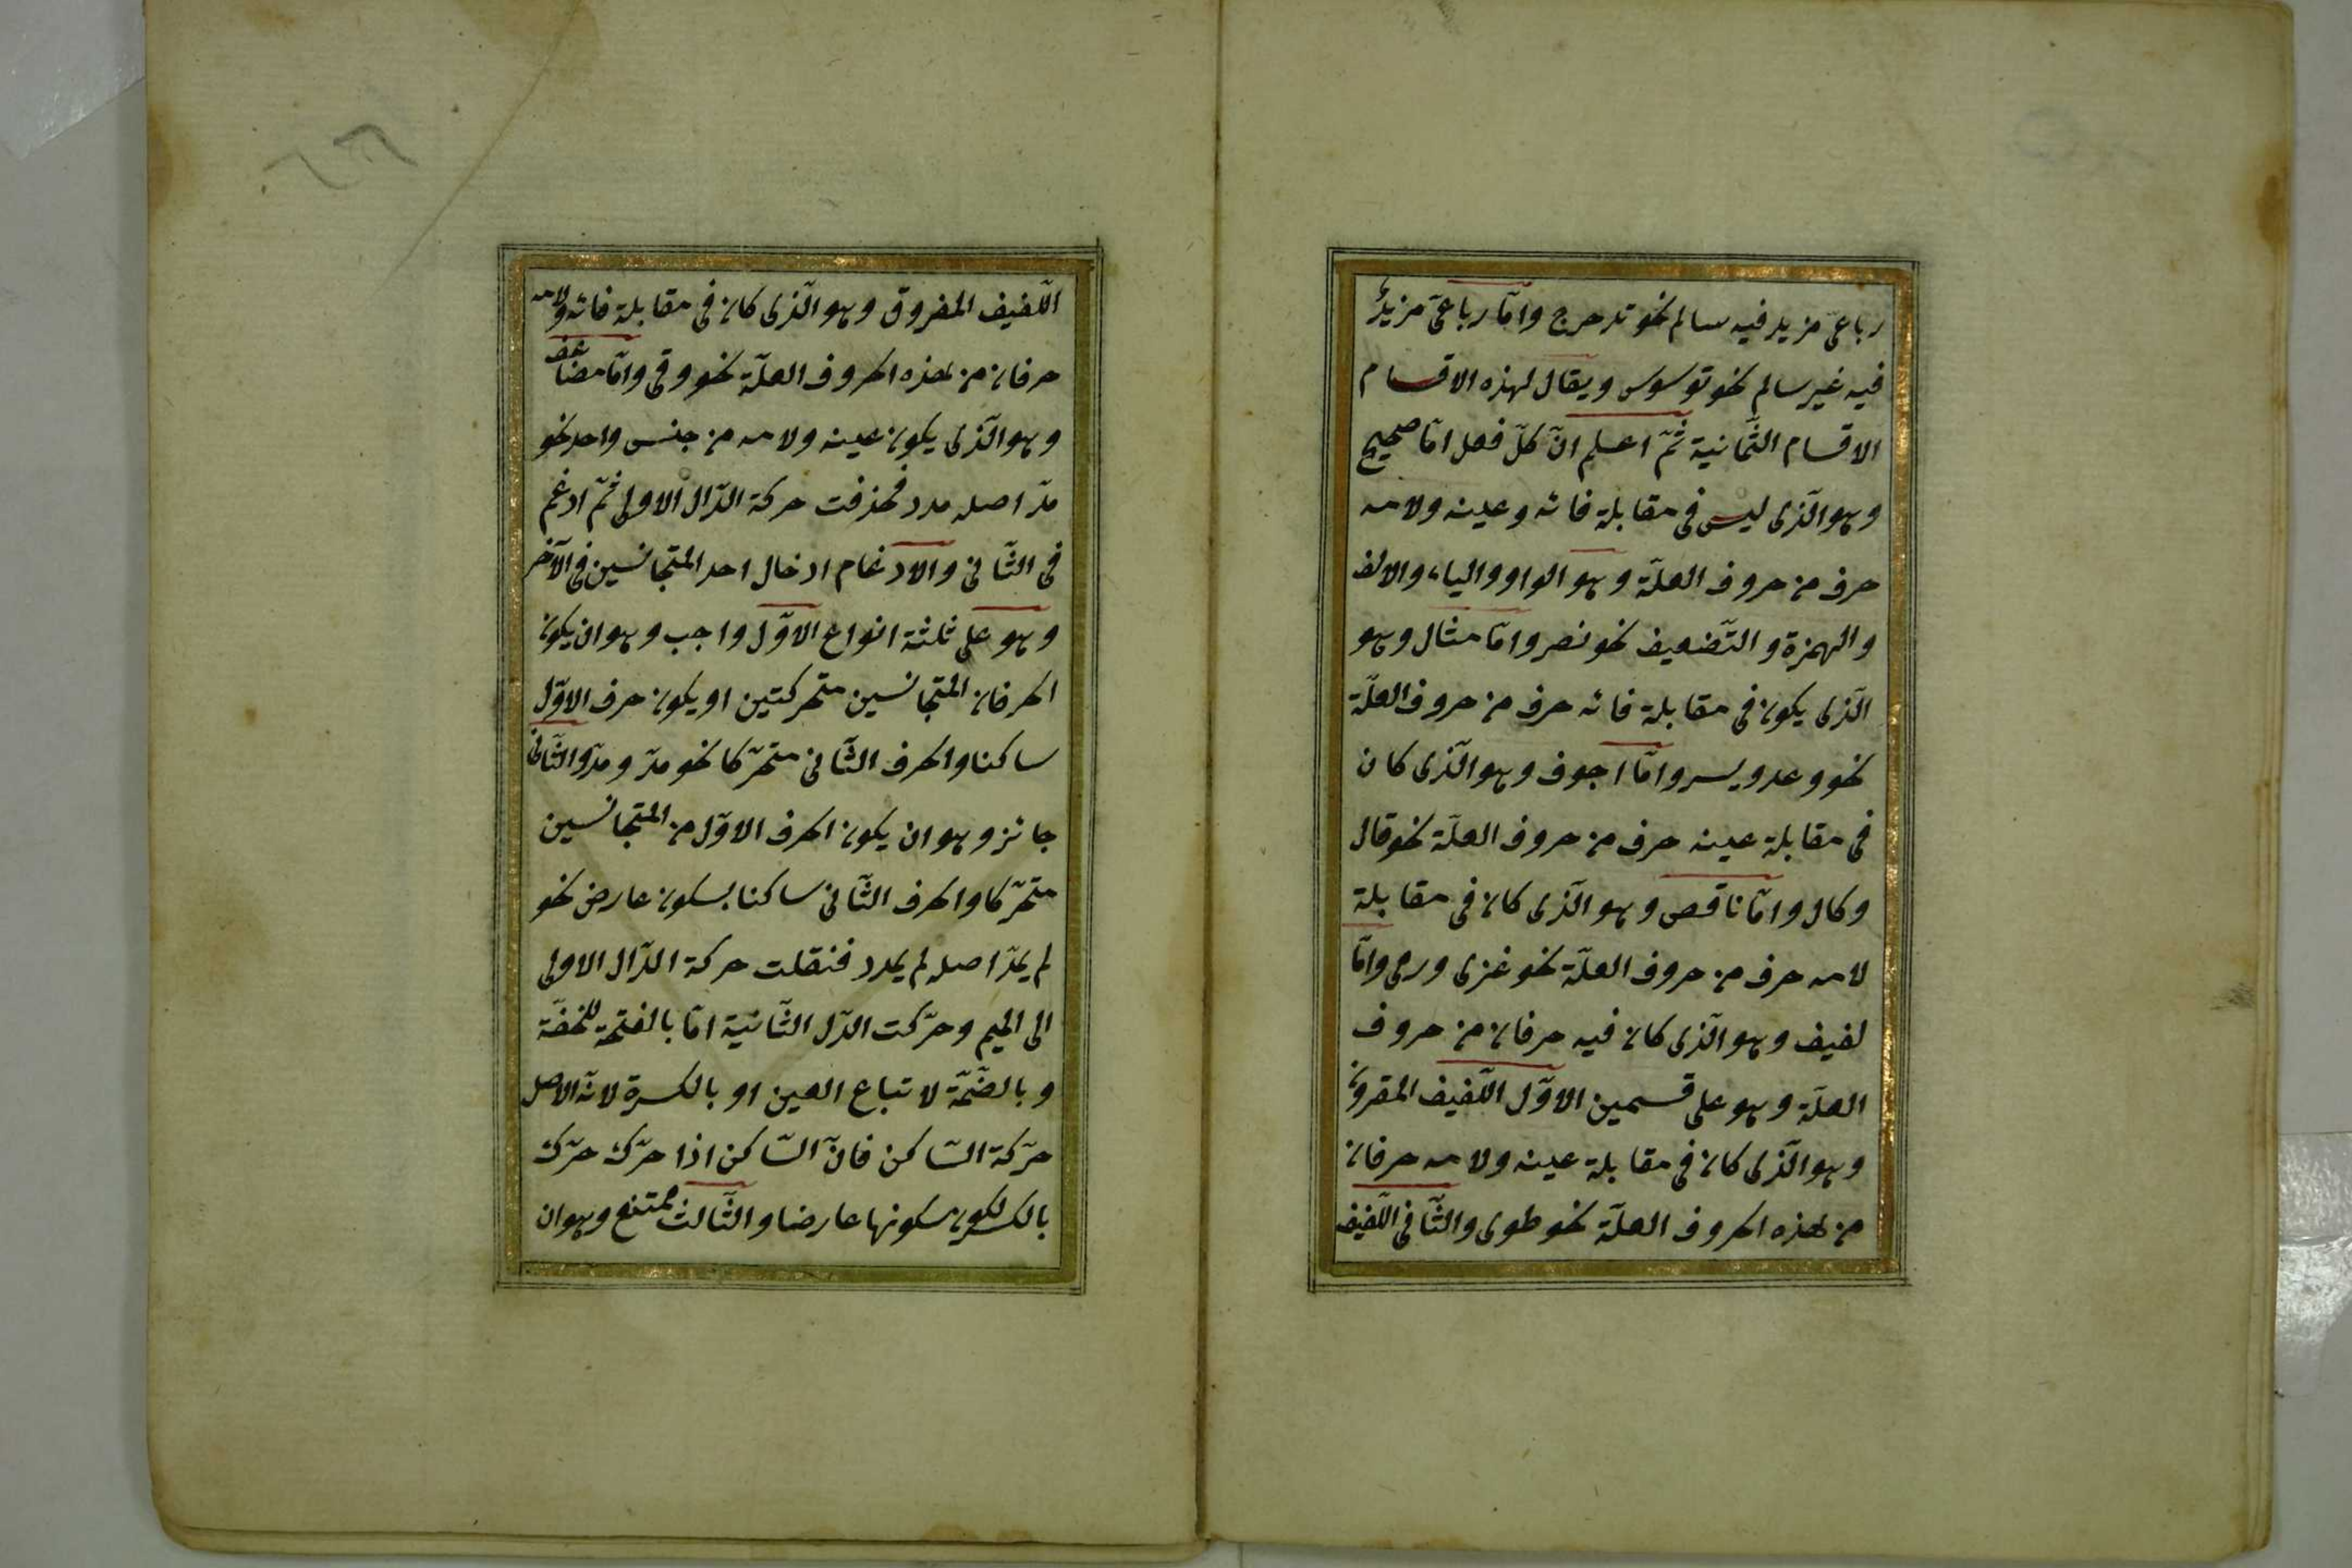 رباعىّ مزيد فيه سالم نحو تدحرج وامّا رباعىّ مزيدٌ
فيه غير سالم نحو توسوس ويقال لهذه الاقسام
الاقسام الثّمانية ثمّ اعلم انّ كلّ فعل امّا صحيح
وهو الّذى ليس فى مقابلة فائه وعينه ولامه
حرف من حروف العلّة وهو الواو والياء والالف
والهمزة والتّضعيف نحو نصر وامّا مثال وهو
الّذى يكون فى مقابلة فائه حرف من حروف العلّة
نحو وعد ويسر وامّا اجوف وهو الّذى كان
فى مقابلة عينه حرف من حروف العلّة نحو قال
وكال وامّا ناقص وهو الّذى كان فى مقابلة
لامه حرف من حروف العلّة نحو غزى ورمى وامّا
لفيف وهو الّذى كان فيه حرفان من حروف
العلّة وهو على قسمين الاوّل اللّفيف المقرون
وهو الّذى كان فى مقابلة عينه ولامه حرفان
من هذه الحروف العلّة نحو طوى والثّانى اللّفيف
اللّفيف المفروق وهو الّذى كان فى مقابلة فائه ولامه
حرفان من هذه الحروف العلّة نحو وقى وامّا مضاعف
وهو الّذى يكون عينه ولامه من جنس واحد نحو
مدّ اصله مدد فحذفت حركة الدّال الاولى ثمّ ادغم
فى الثّانى والادغام ادخال احد المتجانسين فى الآخر
وهو على ثلثة انواع الاوّل واجب وهو ان يكون
الحرفان المتجانسين متحركتين او يكون حرف الاوّل
ساكنا والحرف الثّانى متحرّكا نحو مدّ ومدّ والثّانى
جائز وهو ان يكون الحرف الاوّل من المتجانسين
متحرّكا والحرف الثّانى ساكنا بسكون عارض نحو
لم يمدّ اصله لم يمدد فنقلت حركة الدّال الاولى
الى الميم وحرّكت الدّل الثّانية امّا بالفتحة للخفّة
وبالضّمّة لاتباع العين او بالكسرة لانّه الاصل
حرّكة السّاكن فانّ السّاكن اذا حرّك حرّك
بالكسر لكون سكونها عارضا والثّالث ممتنع وهو ان